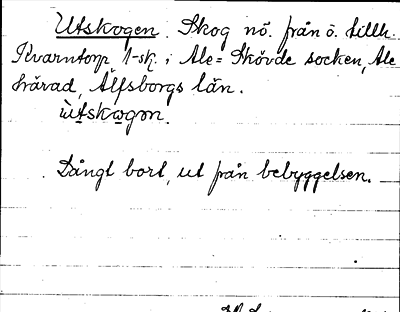 Utskogen. Skog nö. från ö. tillh.
Kvarntorp 1-sk. i Ale=Skövde socken, Ale
härad, Älfsborgs län.
ùtskogon.
Långt bort, ut från bebyggelsen.